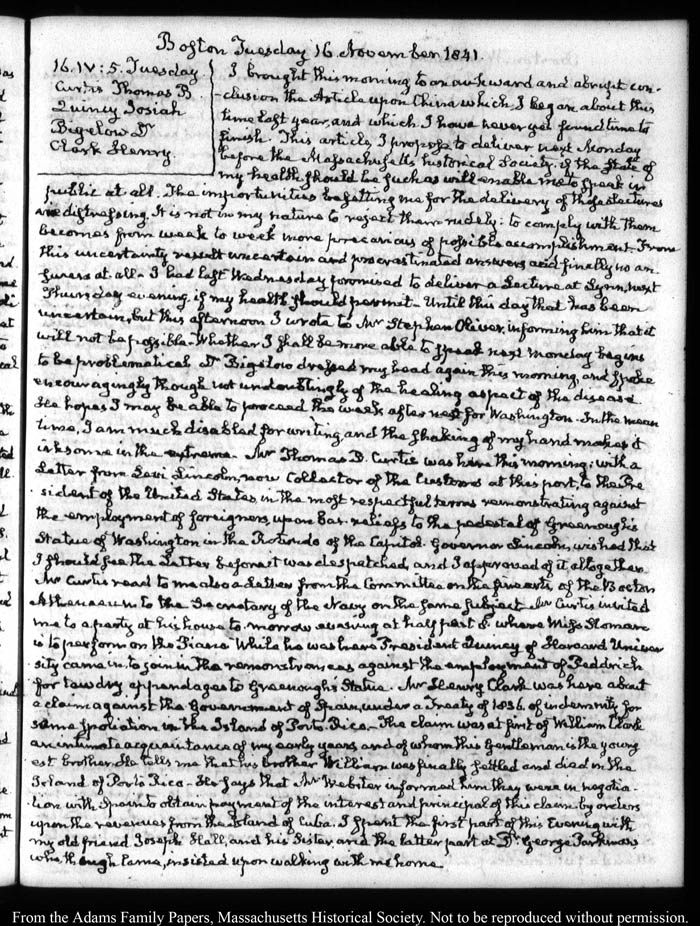 Boston Tuesday 16 November 1841.
16. IV: 5. Tuesday
Curtis Thomas B
Quincy Josiah
Bigelow Dr
Clark Henry.
I brought this morning to an awkward and abrupt con-
-clusion the Article upon China which I began about this
time last year, and which I have never yet found time to
finish. This article I propose to deliver next Monday
before the Massachusetts historical Society, if the State of
my health should be such as will enable me to speak in
public at all. The importunities besetting me for the delivery of these Lectures
are distressing. It is not in my nature to reject them rudely: to comply with them
becomes from week to week more precarious of possible accomplishment. From
this uncertainty result uncertain and procrastinated answers and finally no an-
swers at all. I had last Wednesday promised to deliver a Lecture at Lynn, next
Thursday evening, if my health should permit. Until this day that has been
uncertain, but this afternoon I wrote to Mr Stephen Oliver, informing him that it
will not be possible. Whether I shall be more able to speak next Monday begins
to be problematical. Dr Bigelow dressed my head again this morning, and spoke
encouragingly though not undoubtingly of the healing aspect of the disease
He hopes I may be able to proceed the week after next for Washington. In the mean
time, I am much disabled for writing and the shaking of my hand makes it
irksome in the extreme. Mr Thomas B. Curtis was here this morning; with a
Letter from Levi Lincoln, now Collector of the Customs at this port, to the Pre-
sident of the United States, in the most respectful terms remonstrating against
the employment of foreigners, upon bas-reliefs to the pedestal of Greenough's
Statue of Washington in the Rotundo of the Capitol. Governor Lincoln, wished that
I should see the Letter before it was despatched, and I approved of it altogether.
Mr Curtis read to me also a Letter from the Committee on the fine arts, of the Boston
Athenaeum to the Secretary of the Navy on the same subject. Mr Curtis invited
me to a party at his house to-morrow evening at half past 8. where Miss Sloman
is to perform on the Piano. While he was here President Quincy of Harvard Univer
sity came in to join in the remonstrances against the employment of
for tawdry appendages to Greenough's Statue. Mr Henry Clark was here about
a claim against the Government of Spain, under a Treaty of 1836. of indemnity for
same spoliation in the Island of Porto Rico. The claim was at first of William Clark
an intimate acquaintance of my early years, and of whom this Gentleman is the young
est brother. He tells me that his brother William was finally settled and died in the
Island of Porto Rico. He says that Mr Webster informed him they were in negotia-
tion with Spain to obtain payment of the interest and principal of this claim by orders
upon the revenues from the Island of Cuba. I spent the first part of this Evening with
my old friend Joseph Hall, and his Sister, and the latter part at Dr George Parkman's
who though lame, insisted upon walking with me home.
From the Adams Family Papers, Massachusetts Historical Society. Not to be reproduced without permission.